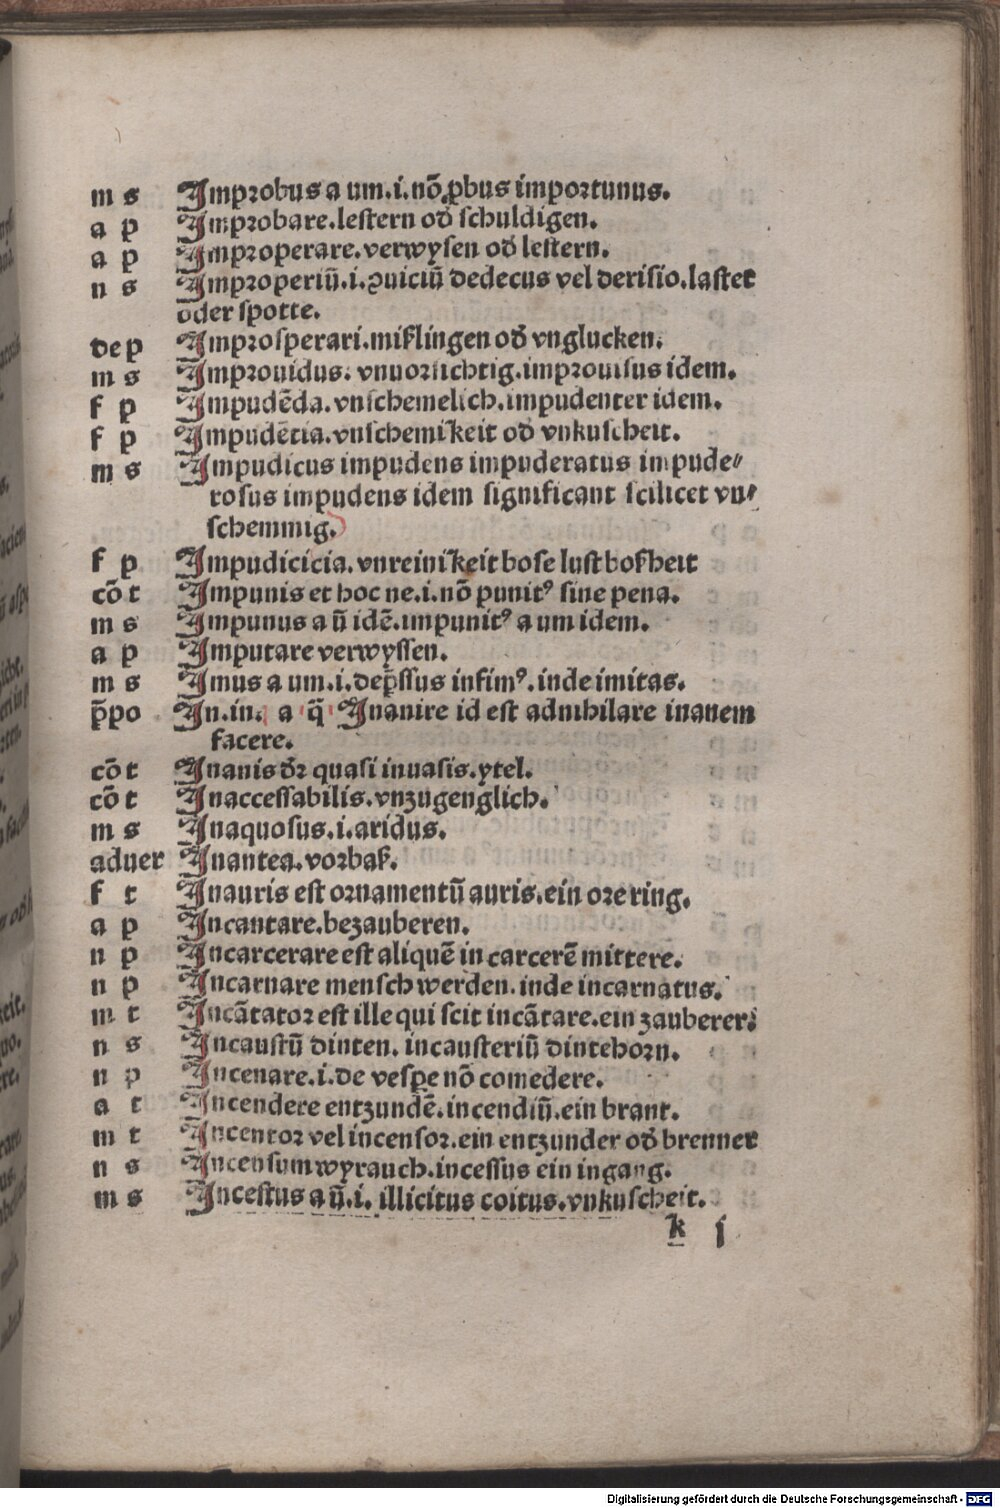 m s Improbus a um.i.nō ꝓbus importunus.
a p Improbare.lestern od̛ schuldigen.
a p Improperare.verwysen od̛ lestern.
n s Improperiū.i.ↄuiciū dedecus vel derisio.laster
oder spotte.
de p Improsperari.miſlingen od̛ vnglucken.
m s Improuidus. vnuorsichtig.improuisus idem.
f p Impudēda.vnschemelich.impudenter idem.
f p Impudētia.vnschemikeit od̛ vnkuscheit.
m s Impudicus impudens impuderatus impude⸗
rosus impudens idem significant scilicet vn⸗
schemmig.
f p Impudicicia.vnreinikeit bose lust boſheit
cō t Impunis et hoc ne.i.nō punitꝰ sine pena.
m s Impunus a ū idē.impunitꝰ a um idem.
a p Imputare verwyssen.
m s Imus a um.i.dep̄ssus infimꝰ.inde imitas.
p̄po In.in. a q̄ Inanire id est adnihilare inanem
facere.
cō t Inanis d̛ꝛ quasi inuasis.ytel.
cō t Inaccessabilis.vnzugenglich.
m s Inaquosus.i.aridus.
aduer Inantea.vorbaſ.
f t Inauris est ornamentū auris.ein ore ring.
a p Incantare.bezauberen.
n p Incarcerare est aliquē in carcerē mittere.
n p Incarnare mensch werden.inde incarnatus.
m t Incātator est ille qui scit incātare.ein zauberer.
n s Incaustū dinten. incausteriū dintehorn.
n p Incenare.i.de vesꝑe nō comedere.
a t Incendere entzundē.incendiū.ein brant.
m t Incentor vel incensor.ein entzunder od̛ brenner
n s Incensum wyrauch.incessus ein ingang.
m s Incestus a ū.i. illicitus coitus.vnkuscheit.
k j
Digitalisierung gefördert durch die Deutsche Forschungsgemeinschaft - DFG